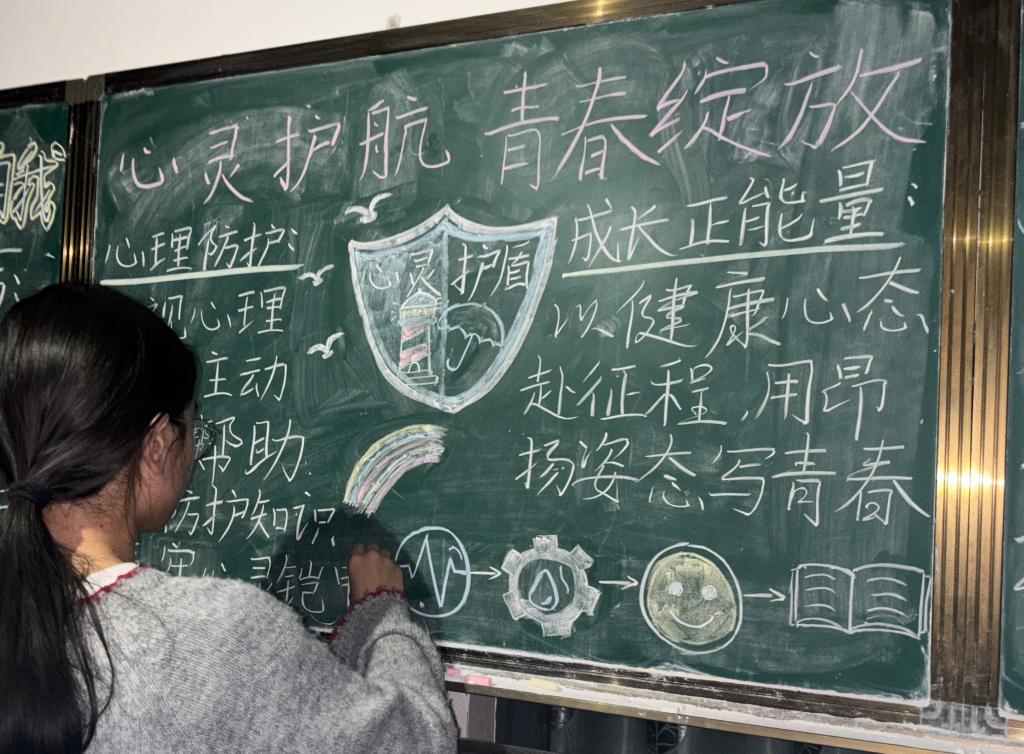 心灵护航 青春绽放
心理防护:
视心理
主动
帮助.
防护知识
心灵铠
心灵护盾
成长正能量:
以健康心态
赴征程,用昂
扬姿态写青春
的我